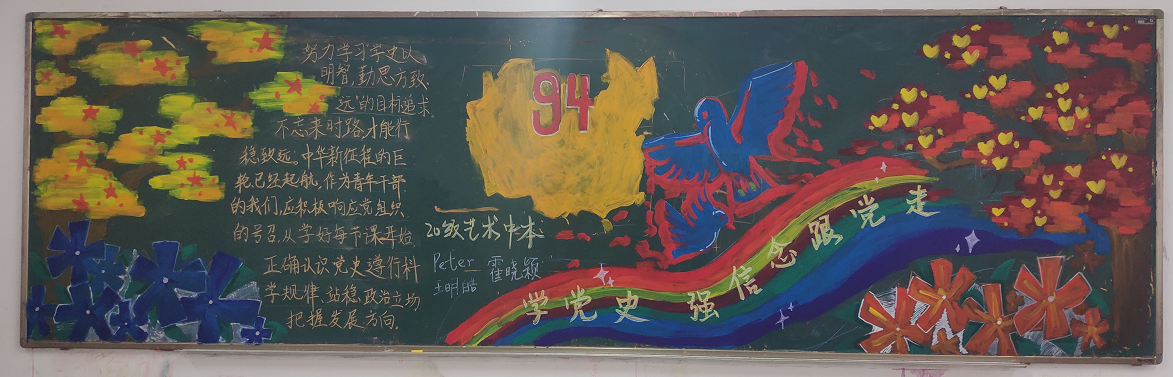 努力学习学史以
明智,勤思方致
远的目标追求
不忘来时路,才能行
稳致远。中华新征程的巨
轮已经起航,作为青年干部
的我们,应积极响应党组织
的号召,从学好每节课开始,
正确认识党史遵行科
学规律、站稳政治立场
把握发展方向。
94
20级艺术中本
Peter 霍晓颖
王明皓
学党史 强信念跟党走